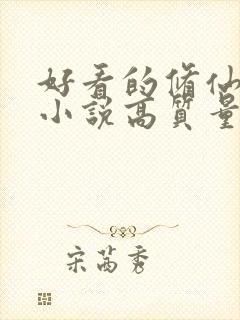 好看的修仙
小説高質量
宋茜秀